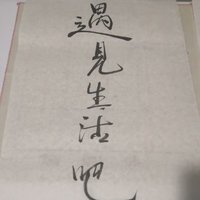 遇見生活吧